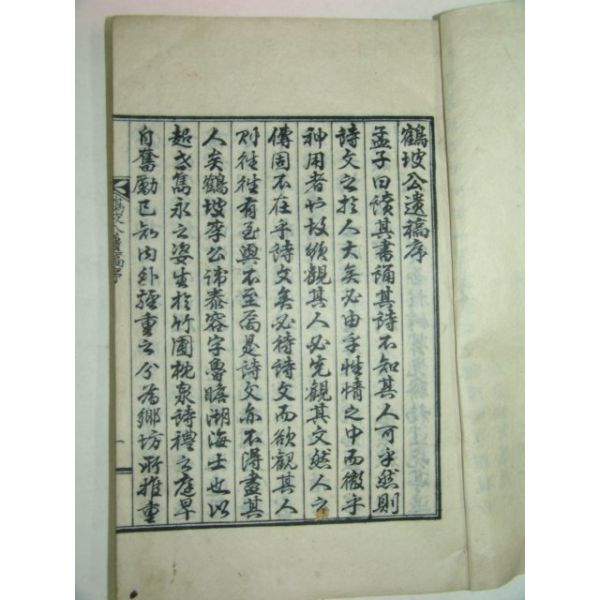 鶴坡公遺稿序
孟子曰讀其書誦其詩不知其人可乎然則
詩文之於人大矣必由乎性情之中而徹乎
神用者也故須觀其人必先觀其文然人之
傳固不在乎詩文矣必待詩文而欲觀其人
則往往有至與不至焉是詩文亦不得盡其
人矣鶴坡李公諱泰容字魯瞻湖海士也以
超世雋永之姿生於竹圃枕泉詩禮之庭早
自奮勵已知內外輕重之分爲鄉坊所推重
鶴坡公遺稿序
一